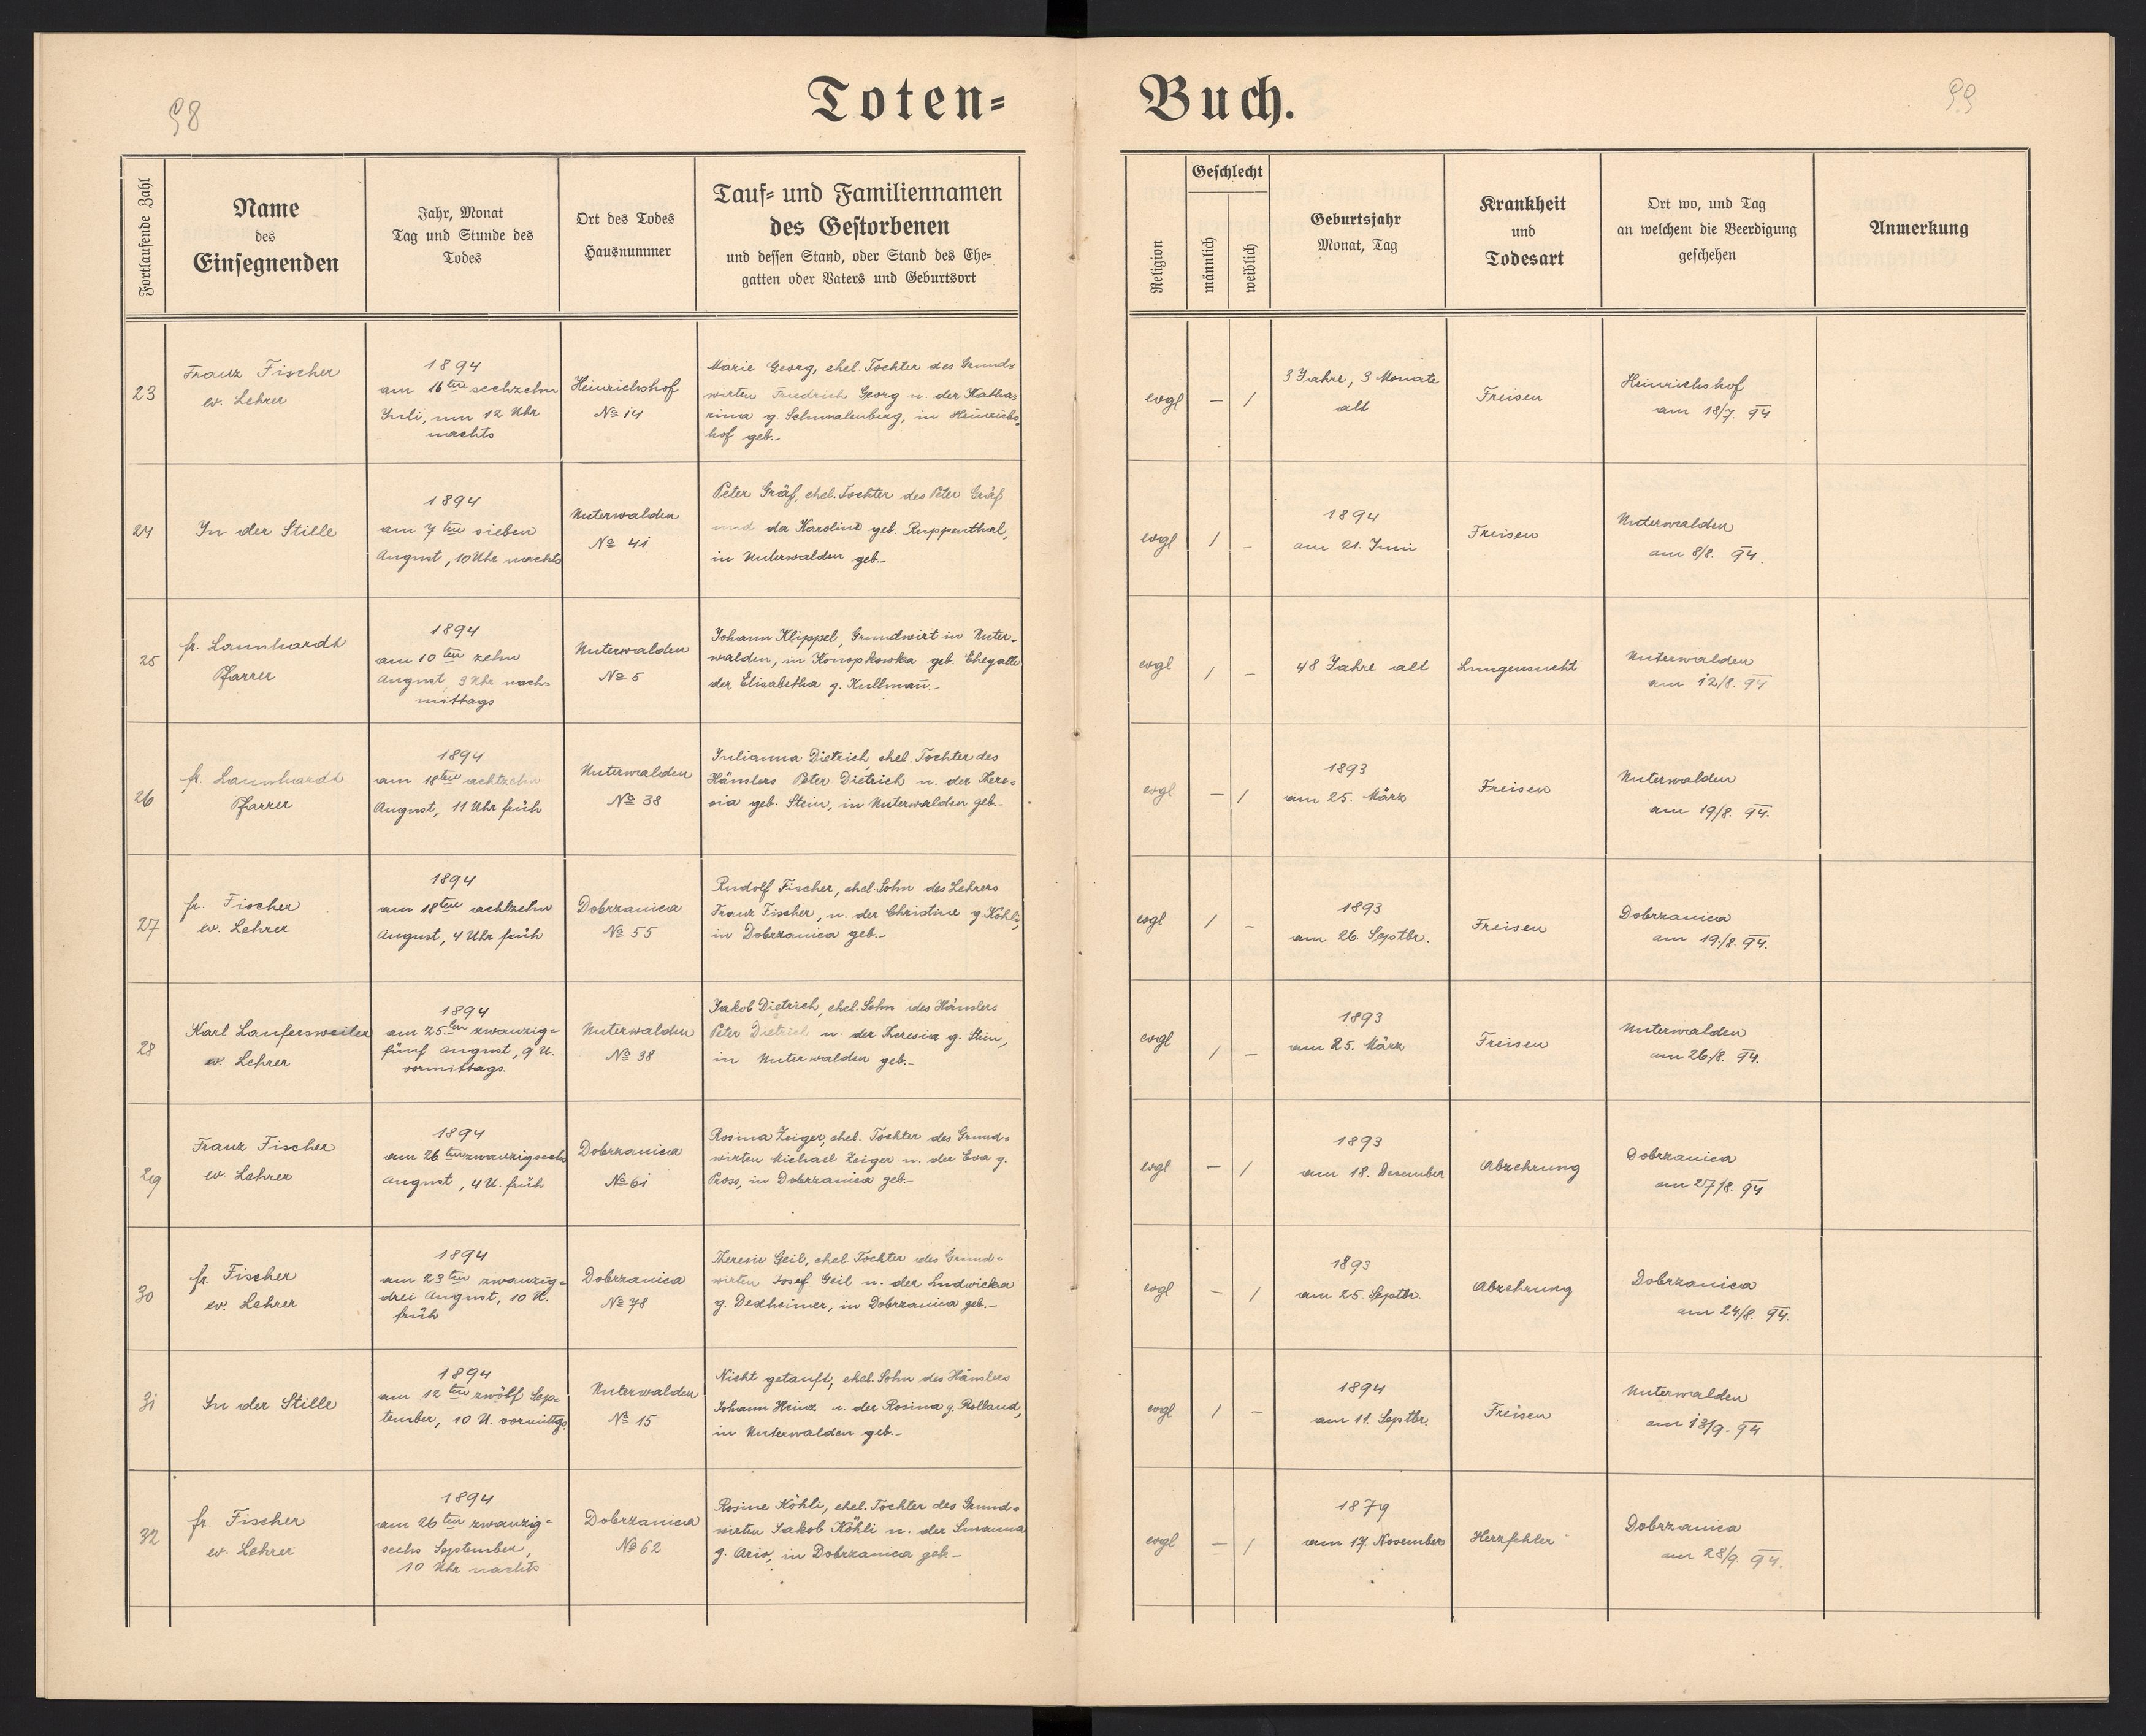 98
Toten=
Buch.
99
Fortlaufende Zahl
Name
des
Einsegnenden
Jahr, Monat
Tag und Stunde des
Todes
Ort des Todes
Hausnummer
Tauf= und Familiennamen
des Gestorbenen
und dessen Stand, oder Stand des Ehe=
gatten oder Vaters und Geburtsort
Religion
Geschlecht
männlich
weiblich
Geburtsjahr
Monat, Tag
Krankheit
und
Todesart
Ort wo, und Tag
an welchem die Beerdigung
geschehen
Anmerkung
23
Franz Fischer
ev. Lehrer
1894
am 16ten sechzehn
Juli, um 12 Uhr
nachts
Heinrichshof
№ 14
Marie Georg, ehel. Tochter des Grund=
wirten Friedrich Georg u. der Katha=
rina g. Schmalenberg, in Heinrichs=
hof geb.-
evgl
-
/
3 Jahre, 3 Monate
alt
Freisen
Heinrichshof
am 18/7. 94
24
In der Stille
1894
am 7ten sieben
August, 10 Uhr nachts
Unterwalden
№ 41
Peter Gräf, ehel. Tochter des Peter Gräf
und der Karoline geb. Ruppenthal,
in Unterwalden geb.-
evgl
/
-
1894
am 21. Juni
Freisen
Unterwalden
am 8/8. 94.
25
fr. Launhardt
Pfarrer
1894
am 10ten zehn
August 3 Uhr nach=
mittags
Unterwalden
№ 5
Johann Klippel, Grundwirt in Unter=
walden, in Konopkowka geb. Ehegatte
der Elisabetha g. Kullmañ.-
evgl
/
-
48 Jahre alt
Lungensucht
Unterwalden
am 12/8. 94
26
fr. Launhardt
Pfarrer
1894
am 18ten achtzehn
August, 11 Uhr früh
Unterwalden
№ 38
Julianna Dietrich, ehel. Tochter des
Häuslers Peter Dietrich u. der There=
sia geb. Stein, in Unterwalden geb.-
evgl
-
/
1893
am 25. März
Freisen
Unterwalden
am 19/8. 94.
27
fr. Fischer
ev. Lehrer
1894
am 18ten achtzehn
August, 4 Uhr früh
Dobrzanica
№ 55
Rudolf Fischer, ehel. Sohn des Lehrers
Franz Fischer, u. der Christine g. Köhli,
in Dobrzanica geb.-
evgl
/
-
1893
am 26. Septbr.
Freisen
Dobrzanica
am 19./8. 94.
28
Karl Laufersweiler
ev. Lehrer
1894
am 25.ten zwanzig=
fünf August, 9 U.
vormittags.
Unterwalden
№ 38
Jakob Dietrich, ehel. Sohn des Häuslers
Peter Dietrich u. der Theresia g. Stein,
in Unterwalden geb.-
evgl
/
-
1893
am 25. März
Freisen
Unterwalden
am 26/8. 94.
29
Franz Fischer
ev. Lehrer
1894
am 26ten zwanzigsechs
August, 4 U. früh
Dobrzanica
№ 61
Rosina Zeiger, ehel. Tochter des Grund=
wirten Michael Zeiger u. der Eva g.
Pross, in Dobrzanica geb.-
evgl
-
/
1893
am 18. Dezember
Abzehrung
Dobrzanica
am 27/8. 94
30
fr. Fischer
ev. Lehrer
1894
am 23ten zwanzig=
drei August, 10 U.
früh
Dobrzanica
№ 78
Theresie Geil, ehel. Tochter des Grund=
wirten Josef Geil u. der Ludwicka
g. Dexheimer, in Dobrzanica geb.-
evgl
-
/
1893
am 25. Septbr.
Abzehrung
Dobrzanica
am 24/8. 94.
31
In der Stille
1894
am 12ten zwölf Sep=
tember, 10 U. vormittgs.
Unterwalden
№ 15
Nicht getauft, ehel. Sohn des Häuslers
Johann Heinz u. der Rosina g. Rolland,
in Unterwalden geb.-
evgl
/
-
1894
am 11. Septbr.
Freisen
Unterwalden
am 13/9. 94
32
fr. Fischer
ev. Lehrer
1894
am 26ten zwanzig=
sechs September,
10 Uhr nachts
Dobrzanica
№ 62
Rosine Köhli, ehel. Tochter des Grund=
wirten Jakob Köhli u. der Susanna
g. in Dobrzanica geb.-
evgl
-
/
1879
am 17. November
Herzfehler
Dobrzanica
am 28/9. 94.